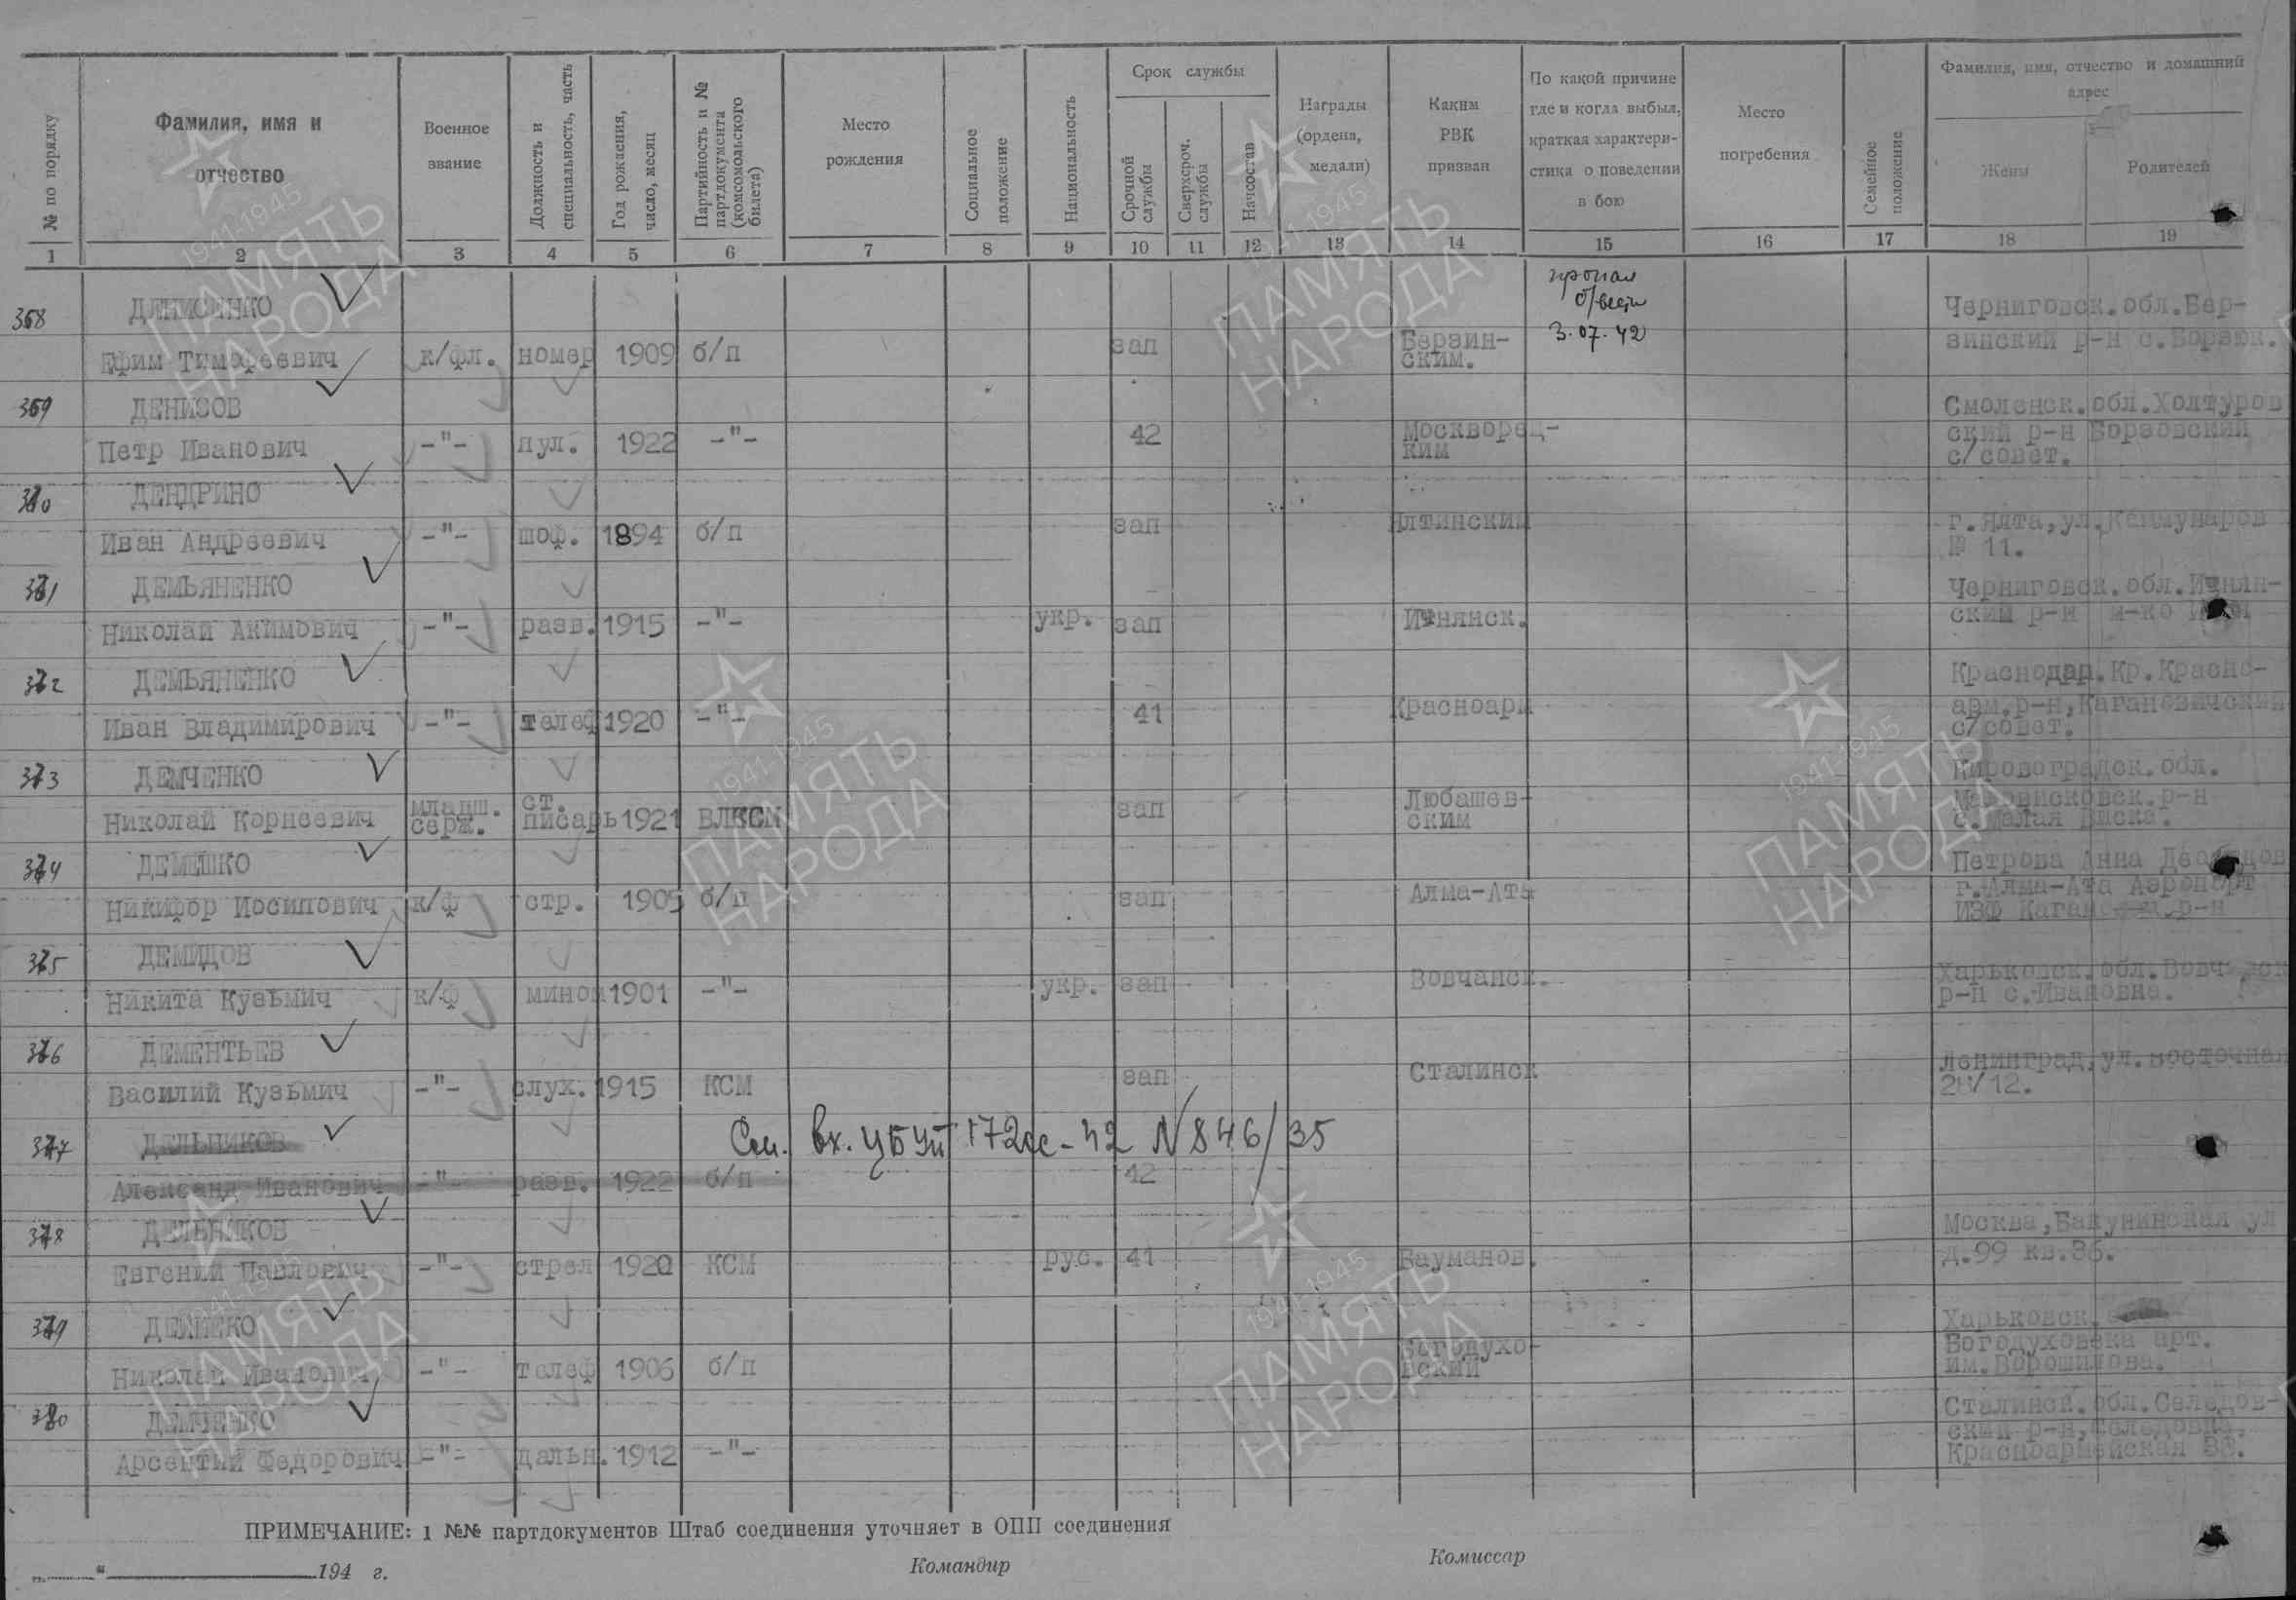 № по порядку
Фамилия, имя и
отчество
Военное
звание
Должность и
специальность, часть
Год рождения,
число, месяц
Партийность и №
партдокумента
(комсомольского
билета)
Место
рождения
Социальное
положение
Национальность
Срок службы
Срочной
службы
Сверхсроч.
службы
Начсостав
Награды
(ордена,
медали)
Каким
РВК
призван
По какой причине
где и когда выбыл,
краткая характери-
стика о поведении
в бою
Место
погребения
Семейное
положение
Фамилия, имя, отчество и домашний
адрес
Жены
Родителей
1 2 3 4 5 6 7 8 9 10 11 12 13 14 15 16 17 18 19
368 ДЕНИСЕНКО пропал Черниговск.обл.Бер-
б/вести
Ефим Тимофеевич к/фл. номер 1909 б/п зап Берзин- 3.07.42 зинский р-н с.Борзюк.
ским.
369 ДЕНИЗОВ Смоленск.обл.Холтуров
Петр Иванович -"- пул. 1922 -"- 42 Москворец- ский р-н Борзовский
ким с/совет.
370 ДЕНДРИНО
Иван Андреевич -"- шоф. 1894 б/п зап Ялтинским г.Ялта,ул.Коммунаров
№ 11.
371 ДЕМЬЯНЕНКО Черниговск.обл.Ичнян-
Николай Акимович -"- разв. 1915 -"- укр. зап Ичнянск. ским р-н м-ко
372 ДЕМЬЯНЕНКО Краснодар.Кр.Красно-
Иван Владимирович -"- телеф 1920 -"- 41 Красноарм арм.р-н,Кагановичский
с/совет.
373 ДЕМЧЕНКО Кировоградск.обл.
Николай Корнеевич младш. серж. ст. писарь 1921 ВЛКСМ зап Любашев- р-н
ским с.Малая Виска.
374 ДЕМЕШКО Петрова Анна
Никифор Иосипович к/ф стр. 1905 б/п зап Алма-Ата г.Алма-Ата Аэропорт
ИЗФ р-н
375 ДЕМИДОВ Харьковск.обл.
Никита Кузьмич к/ф мином 1901 -"- укр. зап Вовчанск. р-н с.Ивановна.
376 ДЕМЕНТЬЕВ Ленинград,ул.Восточная
Василий Кузьмич -"- слух. 1915 КСМ зап Сталинск /12.
377 ДЕЛЬНИКОВ См. вх. ЦБУП 172сс-42 N 846/35
Александ Иванович -"- разв. 1922 б/п 42
378 ДЕЛЬНИКОВ Москва,Бакунинская ул
Евгений Павлович -"- стрел 1920 КСМ рус. 41 Бауманов. д.99 кв.36.
379 ДЕЙНЕКО Харьковск.
Николай Иванович -"- телеф 1906 б/п Богодухо- Богодуховска арт.
вский им.Ворошилова.
380 ДЕМЧЕНКО Сталинск.обл.Селедов-
Арсентий Федорович -"- дальн. 1912 -"- ский р-н,
Красноармейская
ПРИМЕЧАНИЕ: 1 №№ партдокументов Штаб соединения уточняет в ОПП соединения
194 г. Командир Комиссар
1941-1945
ПАМЯТЬ
НАРОДА
1941-1945
ПАМЯТЬ
НАРОДА
1941-1945
ПАМЯТЬ
НАРОДА
1941-1945
ПАМЯТЬ
НАРОДА
1941-1945
ПАМЯТЬ
НАРОДА
1941-1945
ПАМЯТЬ
НАРОДА